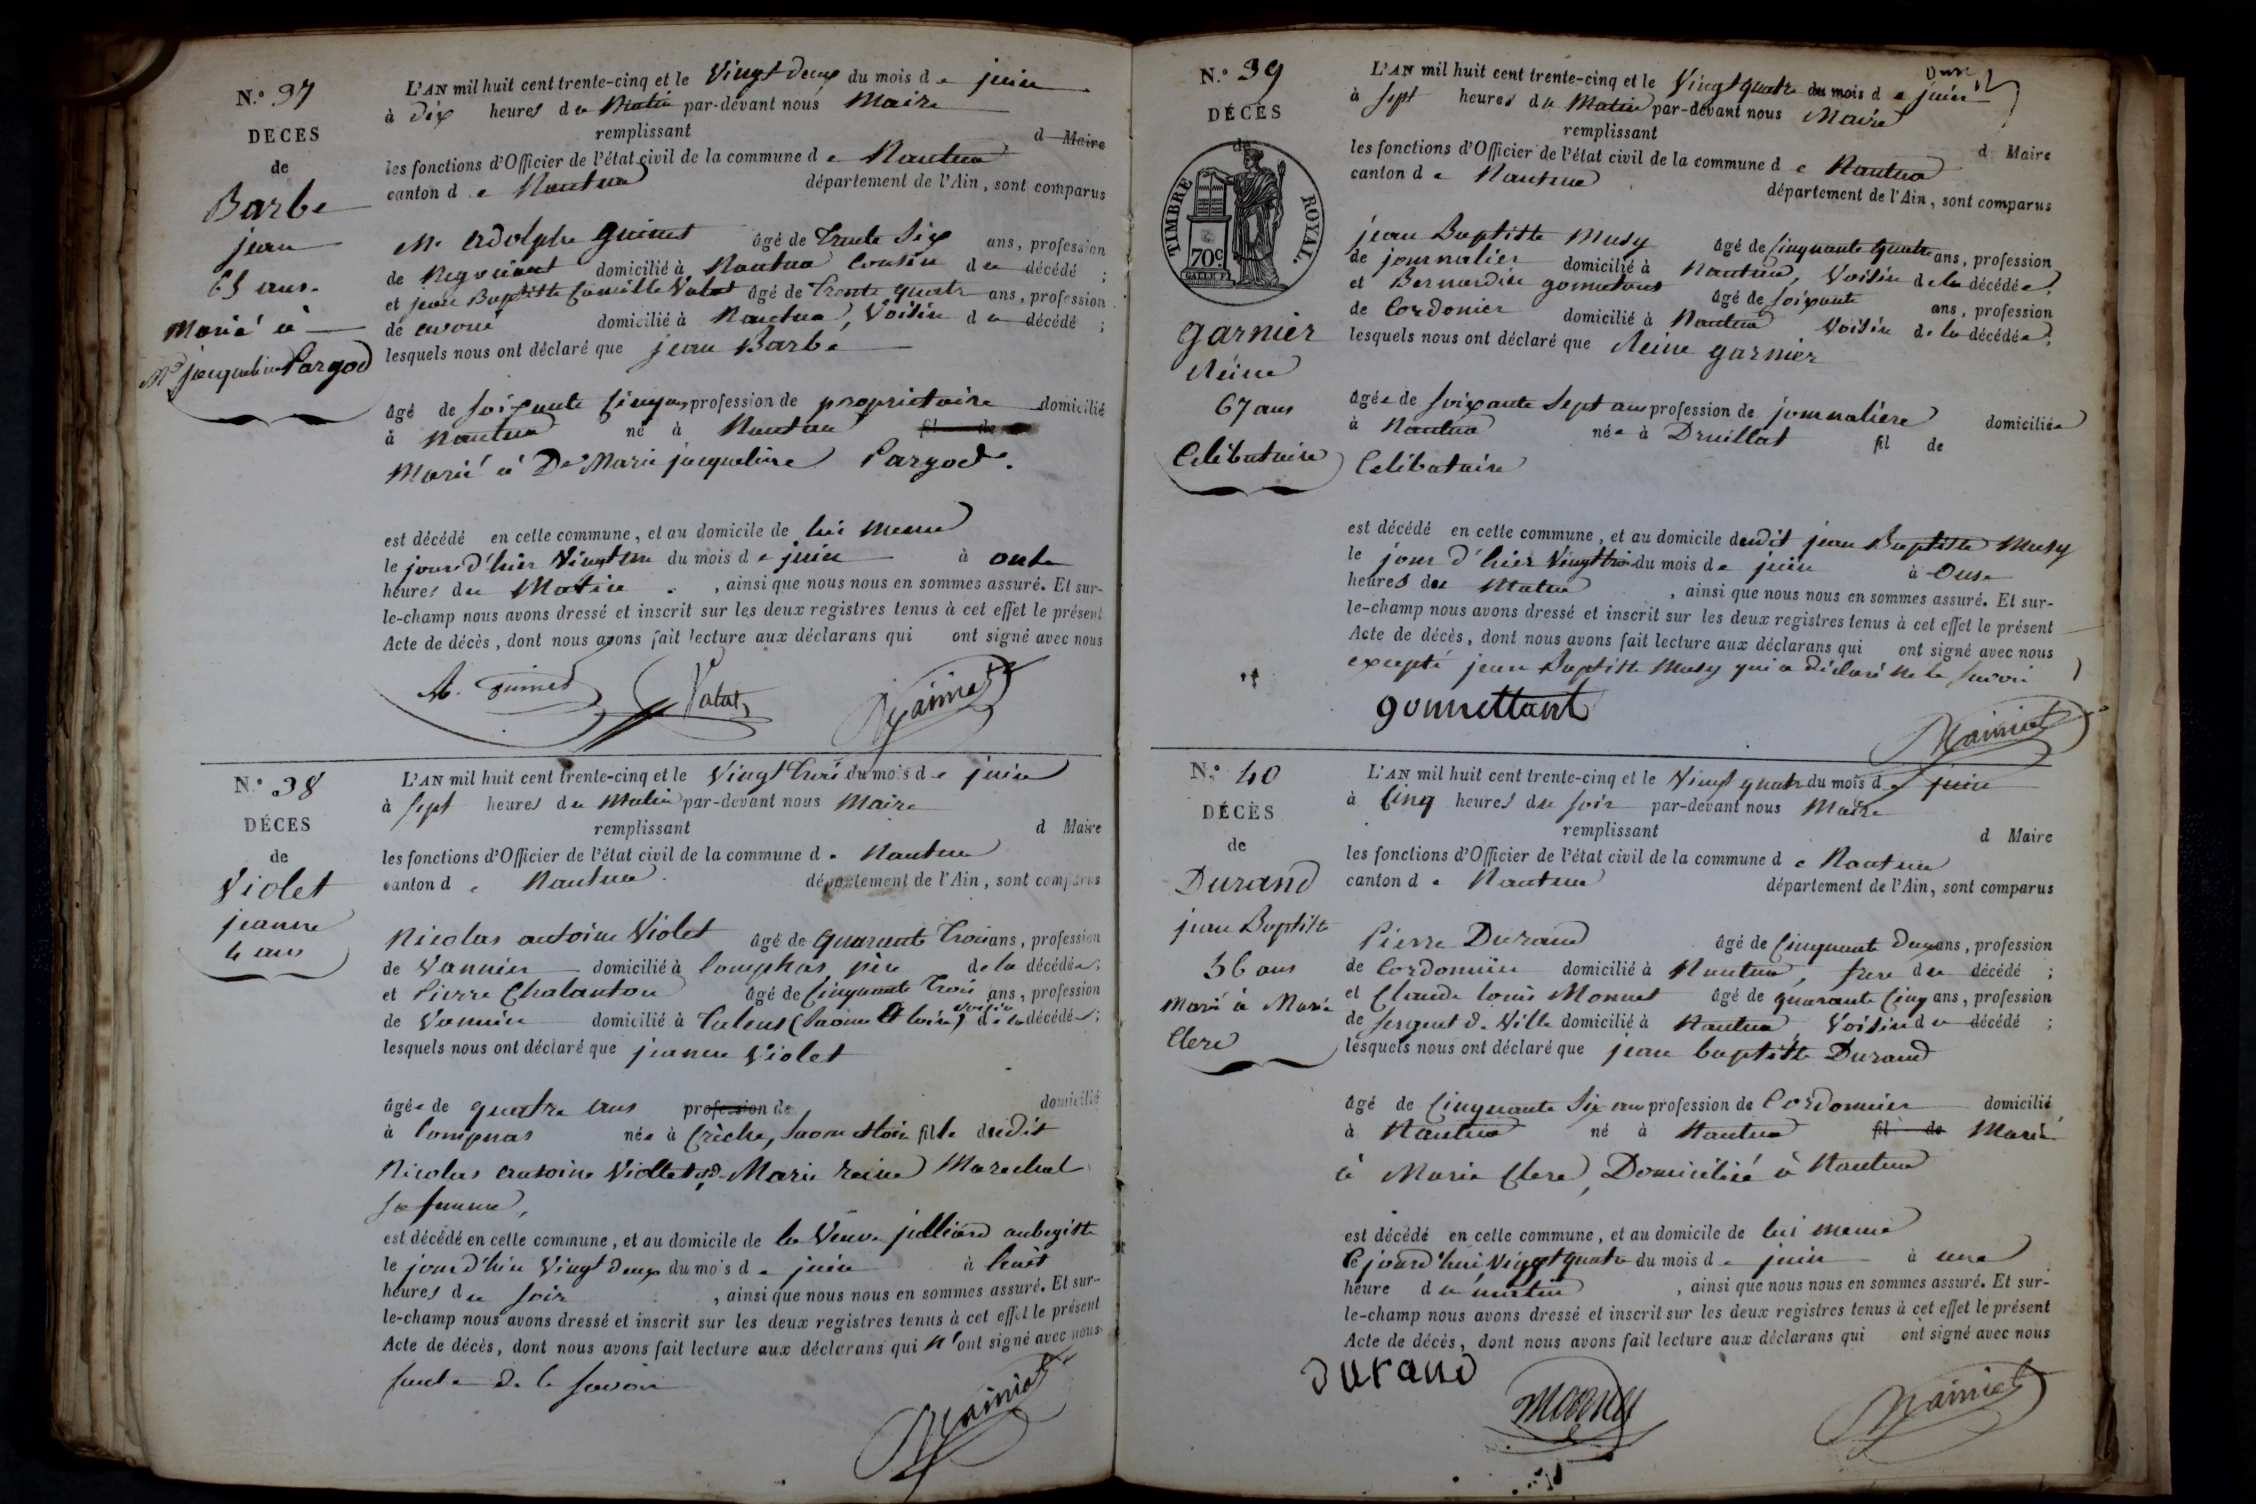 N.º 37
DECES
de
Barbe
jean
65 ans.
Marié à
Me jacqueline Pargod
L'AN mil huit cent trente-cinq et le Vingt deux du mois de juin
à dix heures du Matin par-devant nous Maire
remplissant d Maire
les fonctions d'Officier de l'état civil de la commune de Nantua
canton de Nantua département de l'Ain, sont comparus
Mr Adolphe Guinet âgé de trente Six ans, profession
de Negociant domicilié à Nantua Cousin du décédé ;
et jean Baptiste Camille Valat âgé de trente quatre ans, profession
de avoué domicilié à Nantua, Voisin du décédé ;
lesquels nous ont déclaré que jean Barbe
âgé de soixante Cinq ans profession de proprietaire domicilié
à Nantua né à Nantua fil de
Marié à De Marie jacqueline Pargod.
est décédé en cette commune, et au domicile de lui meme
le jour d'hier Vingt un du mois de juin à onze
heures du Matin, ainsi que nous nous en sommes assuré. Et sur-
le-champ nous avons dressé et inscrit sur les deux registres tenus à cet effet le présent
Acte de décès, dont nous avons fait lecture aux déclarans qui ont signé avec nous
A. Guinet Valat
N.º 38
DÉCES
de
Violet
jeanne
4 ans
L'AN mil huit cent trente-cinq et le Vingt trois du mois de juin
à sept heures du Matin par-devant nous Maire
remplissant d Maire
les fonctions d'Officier de l'état civil de la commune de Nantua
canton de Nantua département de l'Ain, sont comparus
Nicolas antoine Violet âgé de quarante trois ans, profession
de Vannier domicilié à père de la décédée ;
et Pierre Chalanton âgé de Cinquante trois ans, profession
de Vannier domicilié à (Saone et loire) voisin de la décédée ;
lesquels nous ont déclaré que jeanne Violet
âgée de quatre ans profession de domicilié
à née à Crèche, Saone et loire fille dudit
Nicolas antoine Viollet et de Marie reine Marechal
sa femme,
est décédé en cette commune, et au domicile de la Veuve julliard aubergiste
le jour d'hier Vingt deux du mois de juin à huit
heures du soir, ainsi que nous nous en sommes assuré. Et sur-
le-champ nous avons dressé et inscrit sur les deux registres tenus à cet effet le présent
Acte de décès, dont nous avons fait lecture aux déclarans qui n'ont signé avec nous
faute de le savoir
N.º 39
DÉCÈS
de
TIMBRE ROYAL.
70c.
garnier
Reine
67 ans
Celibataire
L'AN mil huit cent trente-cinq et le Vingt quatre du mois de juin
à sept heures du Matin par-devant nous Maire
remplissant d Maire
les fonctions d'Officier de l'état civil de la commune de Nantua
canton de Nantua département de l'Ain, sont comparus
jean Baptiste Musy âgé de Cinquante quatre ans, profession
de journalier domicilié à Nantua, Voisin de la décédée ;
et Bernardin gonnetant âgé de soixante ans, profession
de Cordonier domicilié à Nantua Voisin de la décédée ;
lesquels nous ont déclaré que Reine garnier
âgée de soixante Sept ans profession de journaliere domiciliée
à Nantua née à Druillat fil de
Celibataire
est décédé en cette commune, et au domicile dudit jean Baptiste Musy
le jour d'hier Vingt trois du mois de juin à Onse
heures du Matin, ainsi que nous nous en sommes assuré. Et sur-
le-champ nous avons dressé et inscrit sur les deux registres tenus à cet effet le présent
Acte de décès, dont nous avons fait lecture aux déclarans qui ont signé avec nous
excepté jean Baptiste Musy qui a déclaré ne le savoir
gonnettant
N.º 40
DÉCÈS
de
Durand
jean Baptiste
56 ans
Marié à Marie
Clerc
L'AN mil huit cent trente-cinq et le Vingt quatre du mois de juin
à Cinq heures du soir par-devant nous Maire
remplissant d Maire
les fonctions d'Officier de l'état civil de la commune de Nantua
canton de Nantua département de l'Ain, sont comparus
Pierre Durand âgé de Cinquante deux ans, profession
de Cordonnier domicilié à Nantua, frere du décédé ;
et Claude louis Monnet âgé de quarante Cinq ans, profession
de sergent de Ville domicilié à Nantua, Voisin du décédé ;
lesquels nous ont déclaré que jean baptiste Durand
âgé de Cinquante Six ans profession de Cordonnier domicilié
à Nantua né à Nantua fil de Marié
à Marie Clerc, Domicilié à Nantua
est décédé en cette commune, et au domicile de lui meme
le jourd'hui Vingt quatre du mois de juin à une
heure du matin, ainsi que nous nous en sommes assuré. Et sur-
le-champ nous avons dressé et inscrit sur les deux registres tenus à cet effet le présent
Acte de décès, dont nous avons fait lecture aux déclarans qui ont signé avec nous
Durand